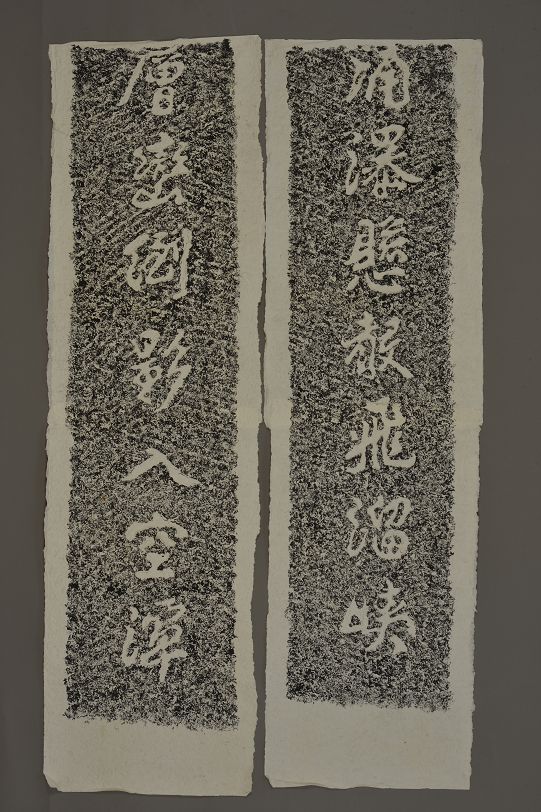 涌瀑懸飛溜峽
層巒倒影入空潭